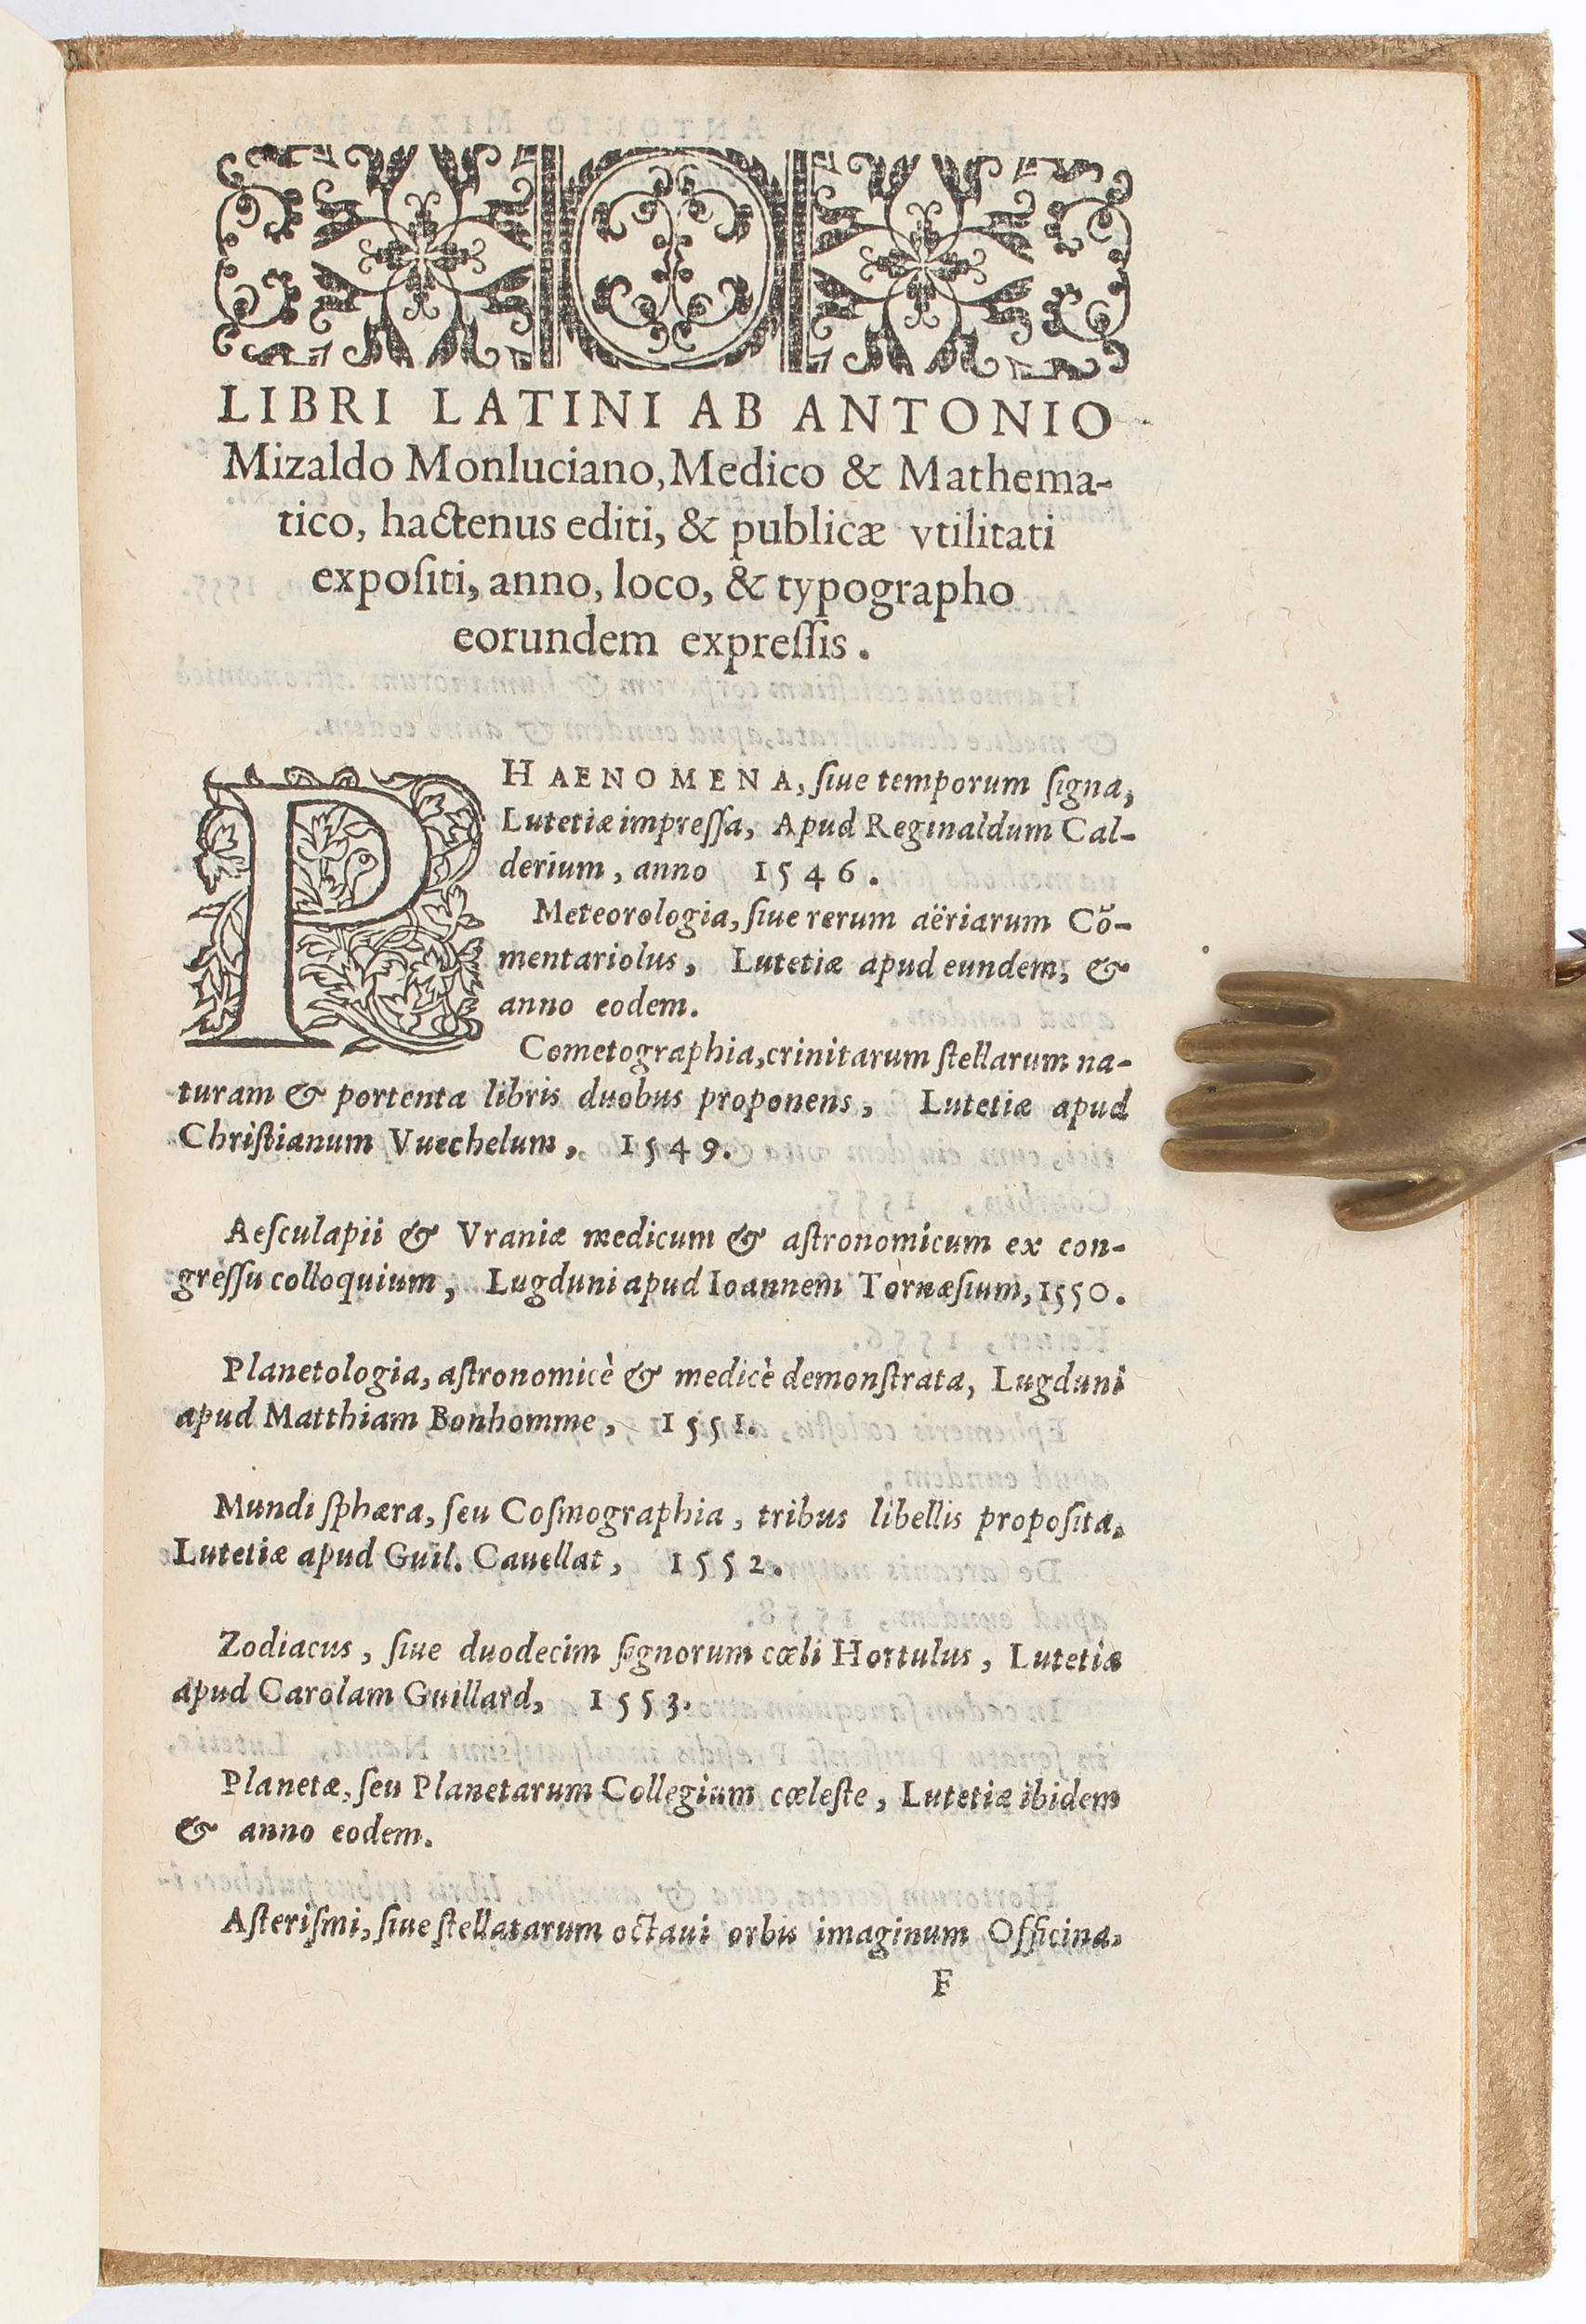 LIBRI LATINI AB ANTONIO
Mizaldo Monluciano, Medico & Mathema-
tico, hactenus editi, & publicæ vtilitati
expoſiti, anno, loco, & typographo
eorundem expreſſis.
PHAENOMENA, ſiue temporum ſigna,
Lutetiæ impreſſa, Apud Reginaldum Cal-
derium, anno 1546.
Meteorologia, ſiue rerum aëriarum Cõ-
mentariolus, Lutetiæ apud eundem, &
anno eodem.
Cometographia, crinitarum ſtellarum na-
turam & portenta libris duobus proponens, Lutetiæ apud
Chriſtianum Vuechelum, 1549.
Aeſculapii & Vraniæ medicum & aſtronomicum ex con-
greſſu colloquium, Lugduni apud Ioannem Tornæſium, 1550.
Planetologia, aſtronomicè & medicè demonſtrata, Lugduni
apud Matthiam Bonhomme, 1551.
Mundi ſphæra, ſeu Coſmographia, tribus libellis propoſita,
Lutetiæ apud Guil. Cauellat, 1552.
Zodiacus, ſiue duodecim ſignorum cœli Hortulus, Lutetiæ
apud Carolam Guillard, 1553.
Planetæ, ſeu Planetarum Collegium cœleſte, Lutetiæ ibidem
& anno eodem.
Aſteriſmi, ſiue ſtellatarum octaui orbis imaginum Officina,
F